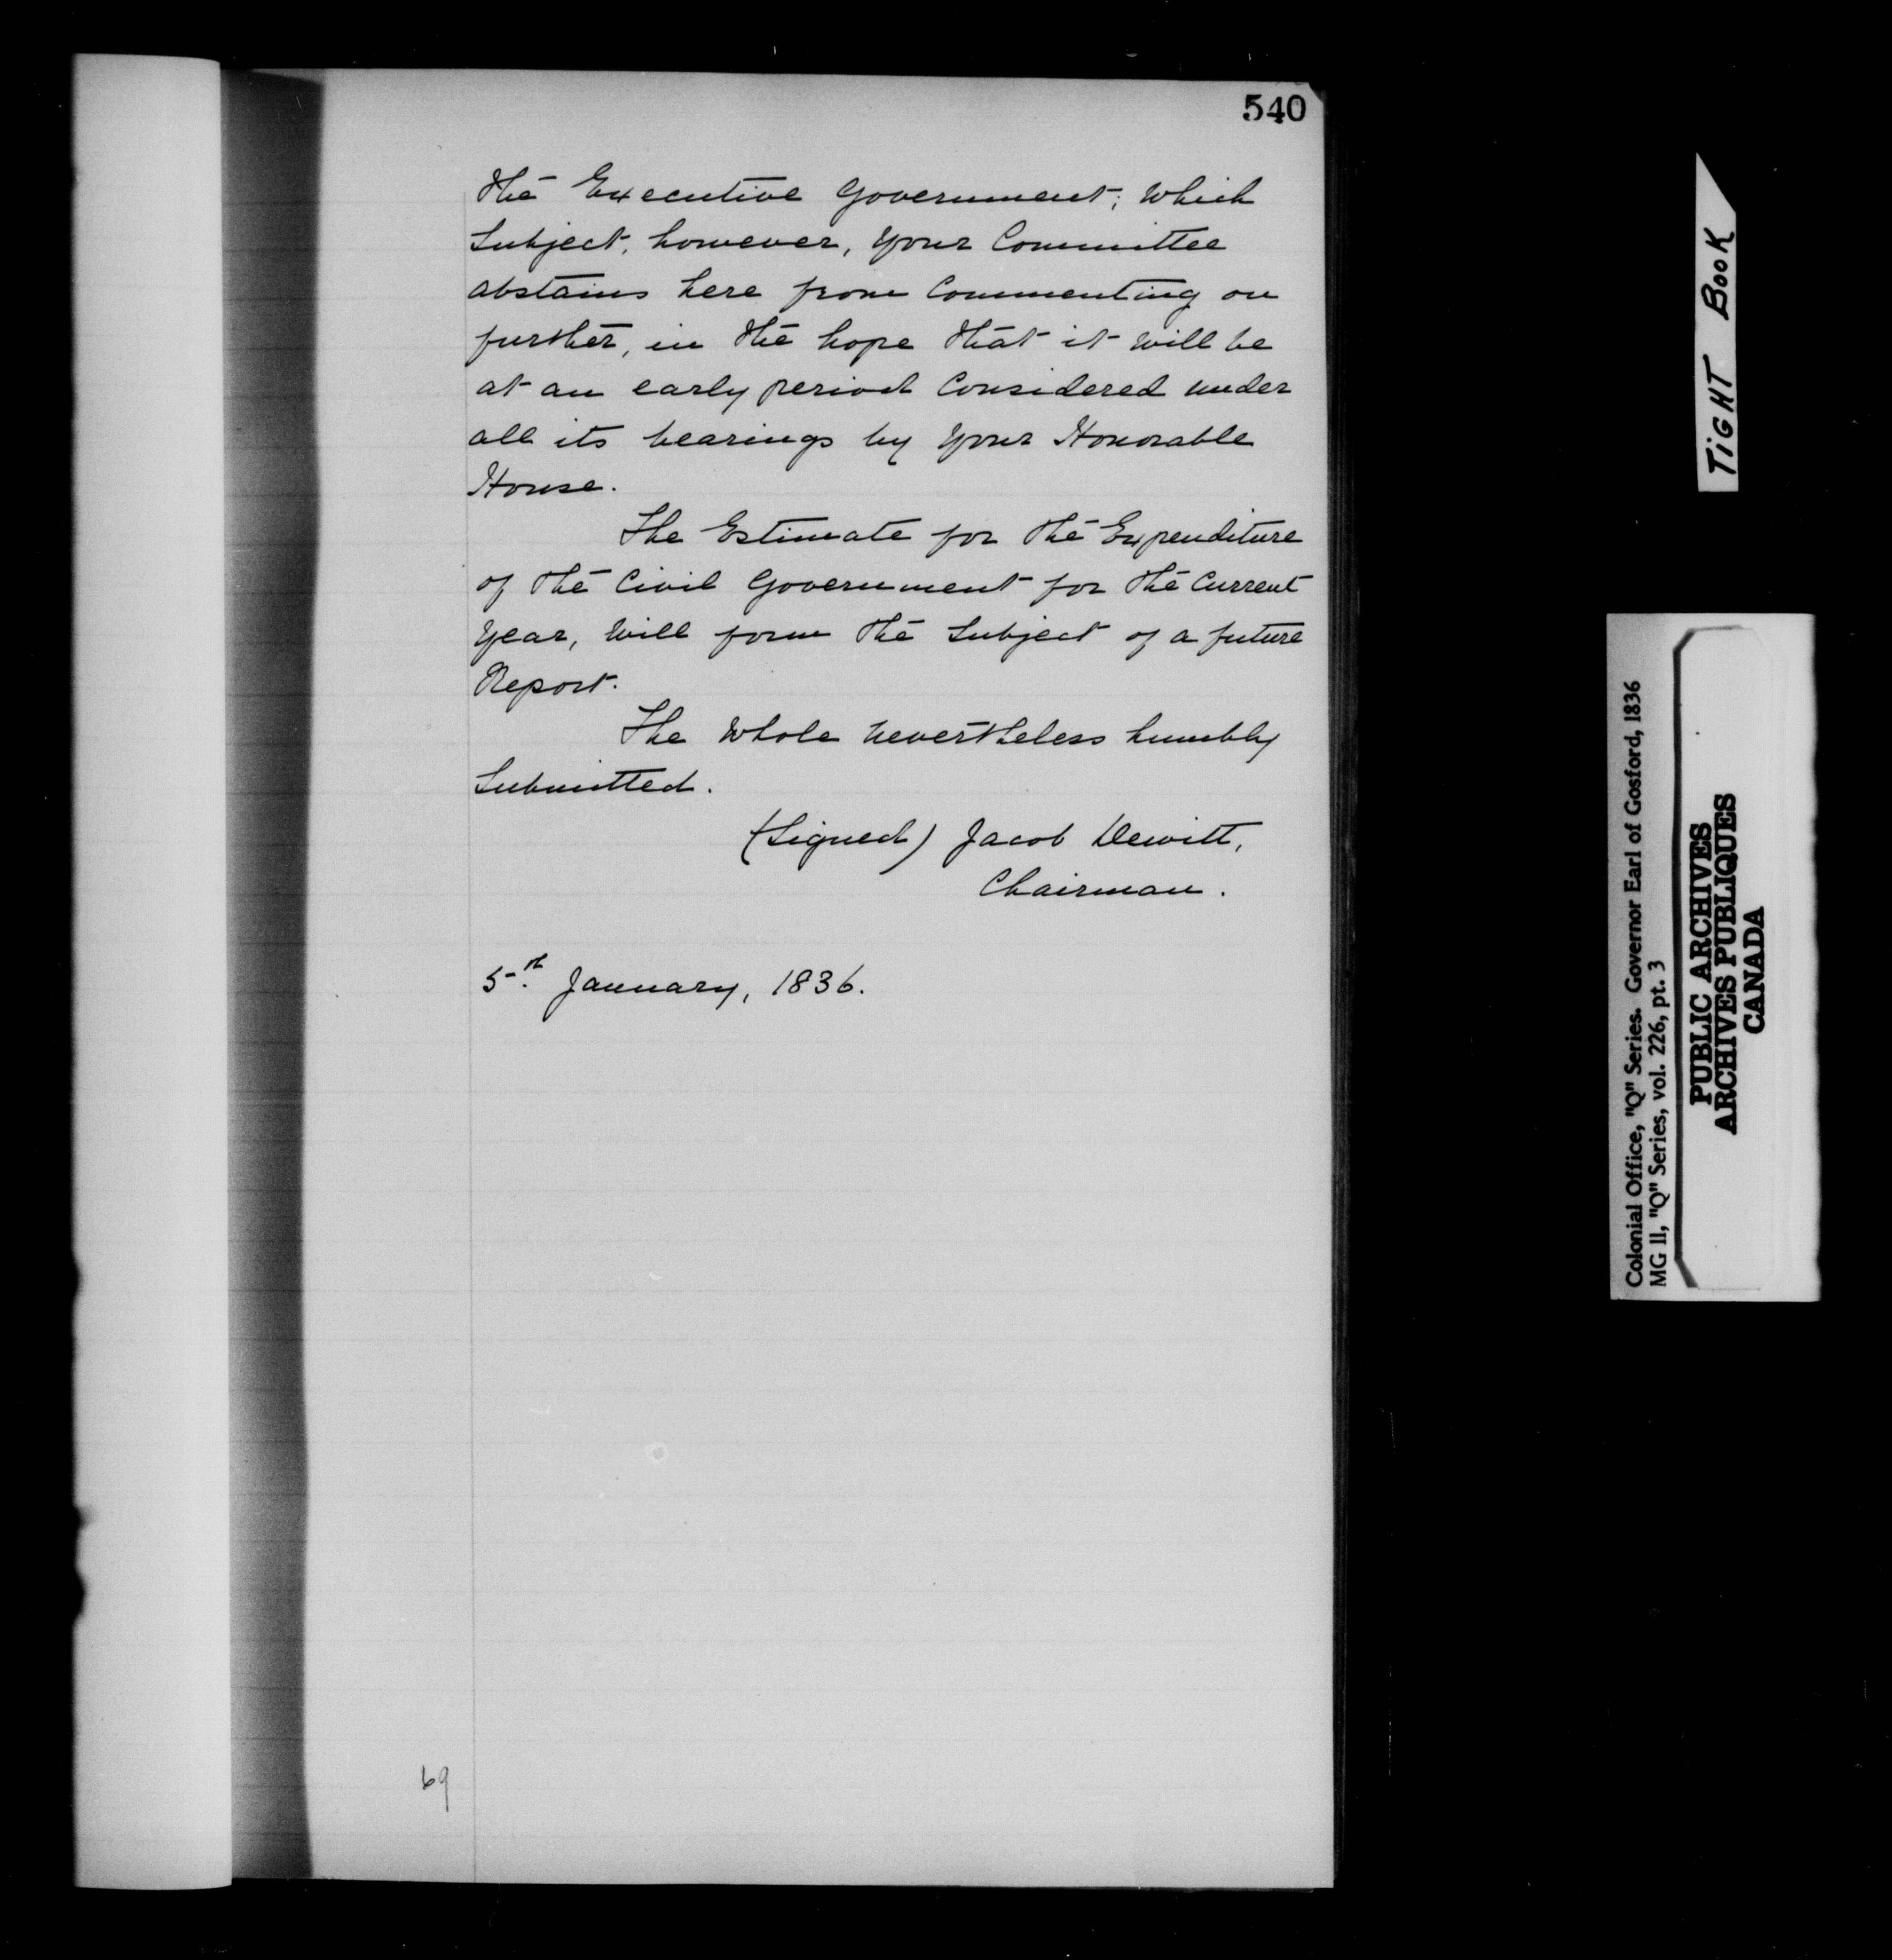 540
the Executive Government; which
Subject, however, your Committee
abstains here from Commenting on
further, in the hope that it will be
at an early period Considered under
all its bearings by your Honorable
House.
The Estimate for the Expenditure
of the Civil Government for the Current
Year, will form the Subject of a future
Report.
The whole nevertheless humbly
Submitted.
(Signed) Jacob Dewitt,
Chairman.
5th. January, 1836.
69
TIGHT BOOK
Colonial Office, "Q" Series. Governor Earl of Gosford, 1836
MG 11, "Q" Series, vol. 226, pt. 3
PUBLIC ARCHIVES
ARCHIVES PUBLIQUES
CANADA